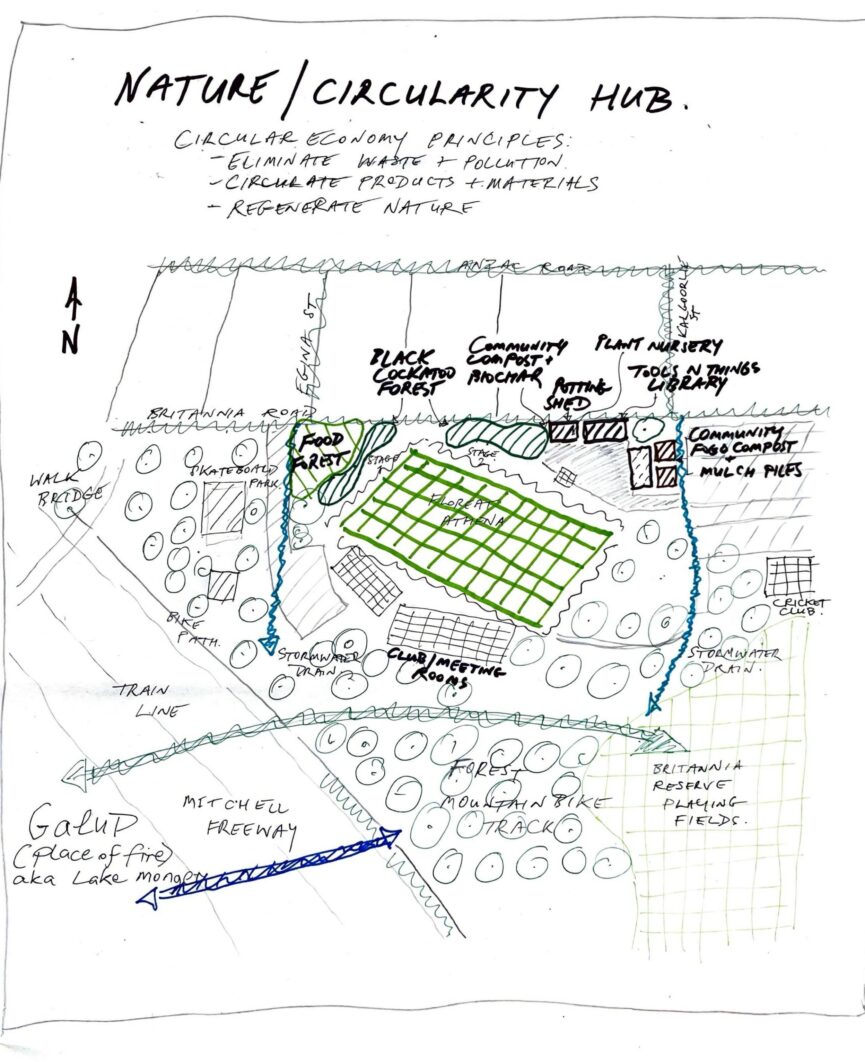 NATURE / CIRCULARITY HUB.
CIRCULAR ECONOMY PRINCIPLES:
- ELIMINATE WASTE + POLLUTION.
- CIRCULATE PRODUCTS + MATERIALS
- REGENERATE NATURE
ANZAC ROAD
N
EGINA ST
KALGOORLIE
ST
BLACK
COCKATOO
FOREST
COMMUNITY
COMPOST +
BIOCHAR
PLANT NURSERY
POTTING
SHED
TOOLS N THINGS
LIBRARY
BRITANNIA ROAD
FOOD
FOREST
STAGE
1
STAGE
2
COMMUNITY
FOGO COMPOST
+
- MULCH PILES
WALK
BRIDGE
SKATEBOARD
PARK
FLOREAT
ATHENA
CRICKET
CLUB.
BIKE
PATH.
STORMWATER
DRAIN
CLUB/MEETING
ROOMS
STORMWATER
DRAIN.
TRAIN
LINE
FOREST
MOUNTAIN BIKE
TRACK
BRITANNIA
RESERVE
PLAYING
FIELDS.
MITCHELL
FREEWAY
Galup
(place of fire)
aka Lake